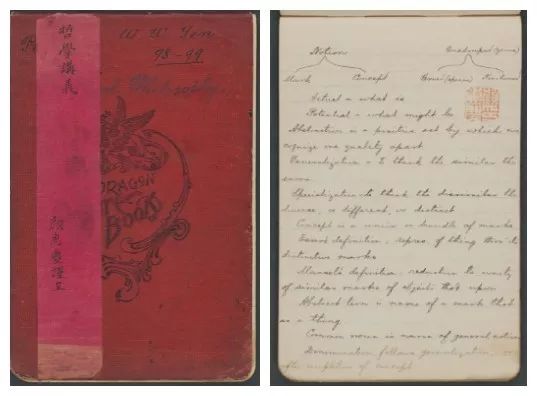 W. W. Yen
98-99
Philosophy
哲學講義
顏惠慶謹呈
DRAGON
Books
Notion
Mark Concept
Actual = what is
Potential = what might be
Abstraction is a positive act by which we
cognize one quality apart
Generalization = to think the similar the
same
Specialization to think the dissimilar the
diverse, or different, or distinct
Concept is a union or bundle of marks
definition, repres. of thing thro' its
distinctive marks
Mansel's definition, reduction to unity
of similar marks of objects thot upon
Abstract term is name of a mark that
is a thing
Common noun is name of general notion
Denomination follows generalization
after completion of concept